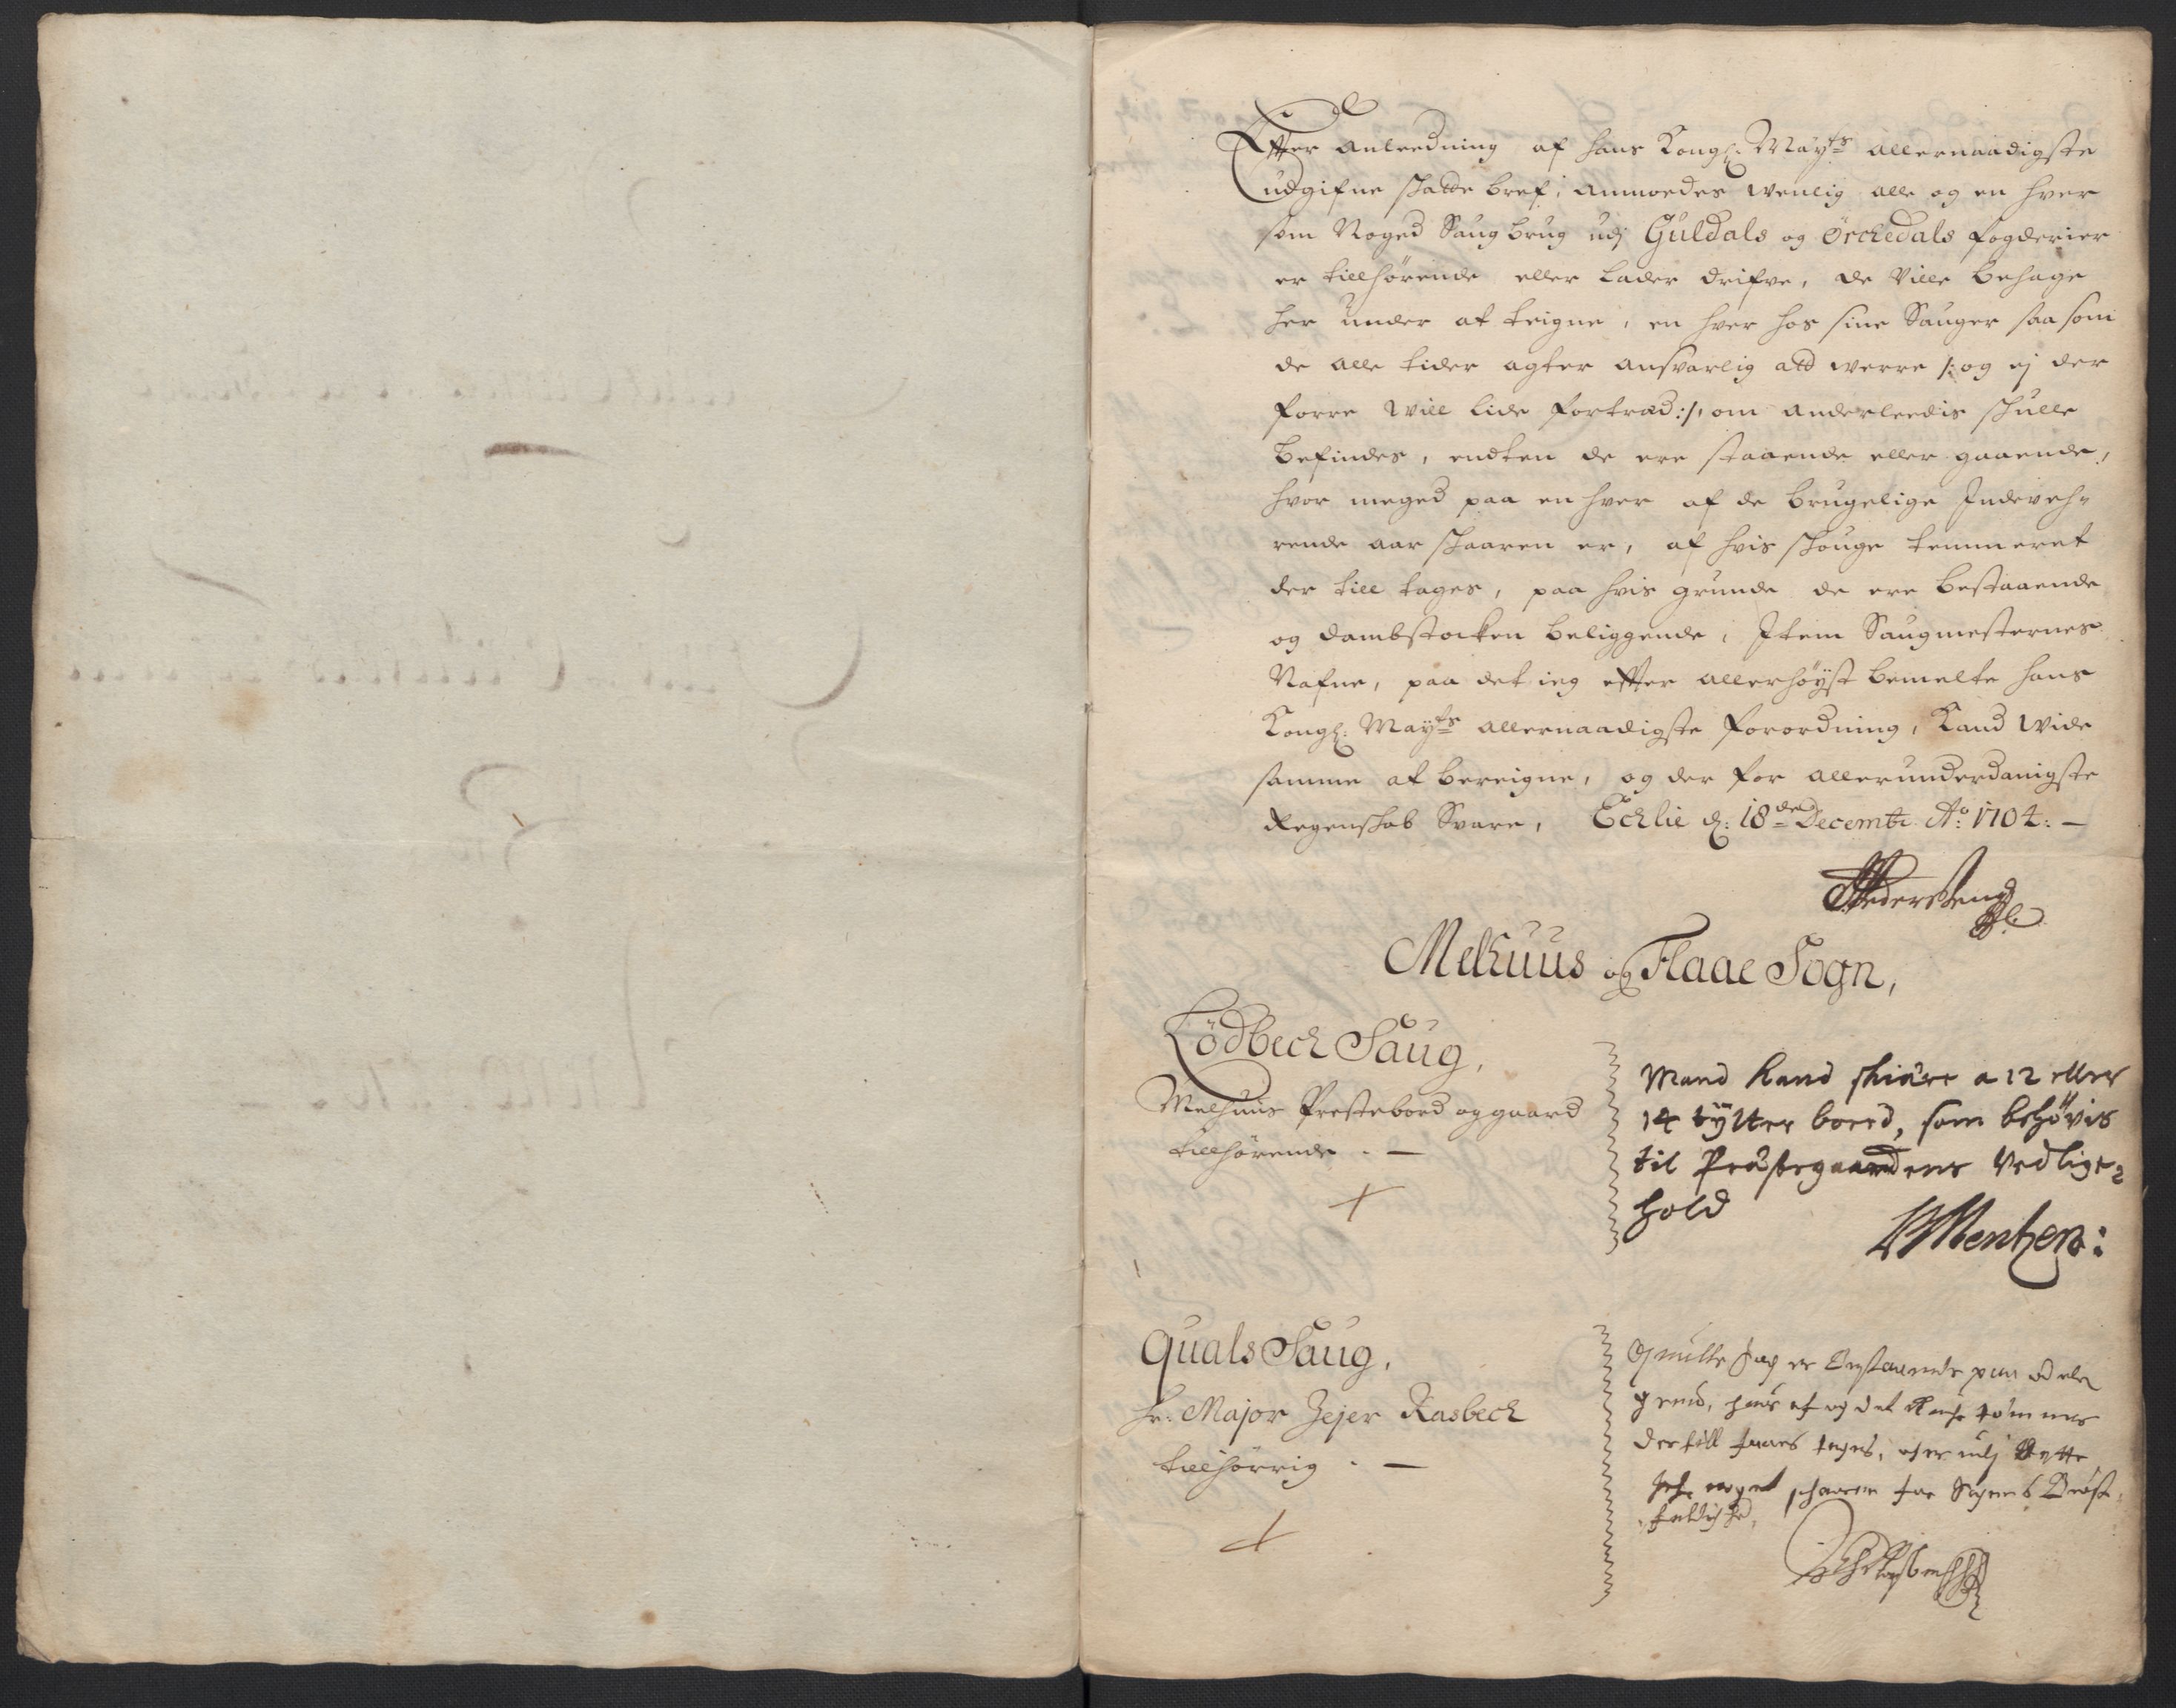 Efter anleedning af hans Kongl: May:ts allernaadigste
udgifne skatte bref, anmoedes wenlig alle og en hver
som Noged Saugbrug udj Guldals og Örckedals fogderier
er tillhörende eller lader drifve, de Ville behage
her under at teigne, en hver hos sine Sauger saa som
de alle tider agter ansvarlig att werre /: og ej der
forre will lide fortræd :/ om anderleedis skulle
befindes, endten de ere staaende eller gaaende,
hvor meged paa en hver af de brugelige Indeveh-
rende aar skaaren er, af hvis skouge temmeret
der till tages, paa hvis grunde de ere bestaaende
og dambstocken beliggende, Item Saugmesternes
Nafne, paa det ieg efter allerhöyst bemelte hans
Kongl: May:ts allernaadigste forordning, Kand wide
samme at bereigne, og der for allerunderdanigste
Regenskab Svare, Echlie d: 18de Decembr Ao: 1704. —
Melhuus og Flaae Sogn,
Lödbech Saug,
Melhuus Prestebord og gaard
tillhörende. —
+
Mand kand skiære a 12 eller
14 tylter boerd, som behøvis
til Præstegaardens Vedlige-
hold
Mentzen:
Quals Saug,
Hr: Major Zejer Rasbech
tillhörrig. —
+
er bestaaende paa
grund, og det
dertill tages, er udj
noget skaaren for Sagens Brøst-
feldighed,